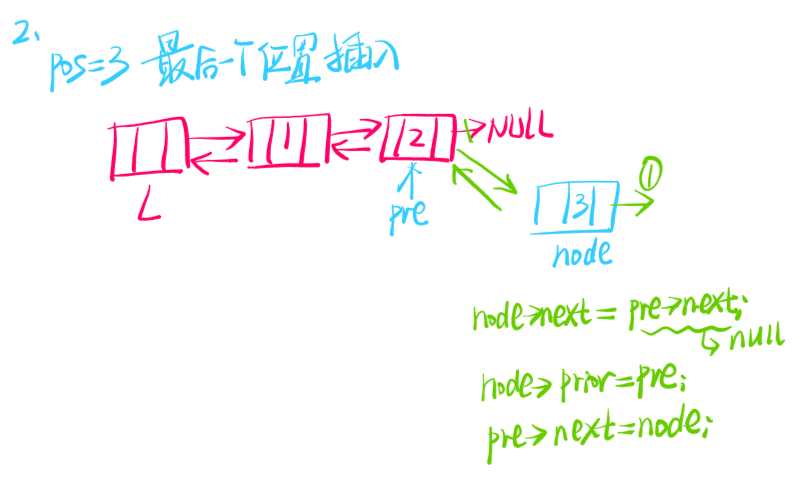 2、
pos=3 最后一个位置插入
1 2 →NULL
L
pre
①
3
node
node→next = pre→next;
null
node→prior=pre;
pre→next=node;